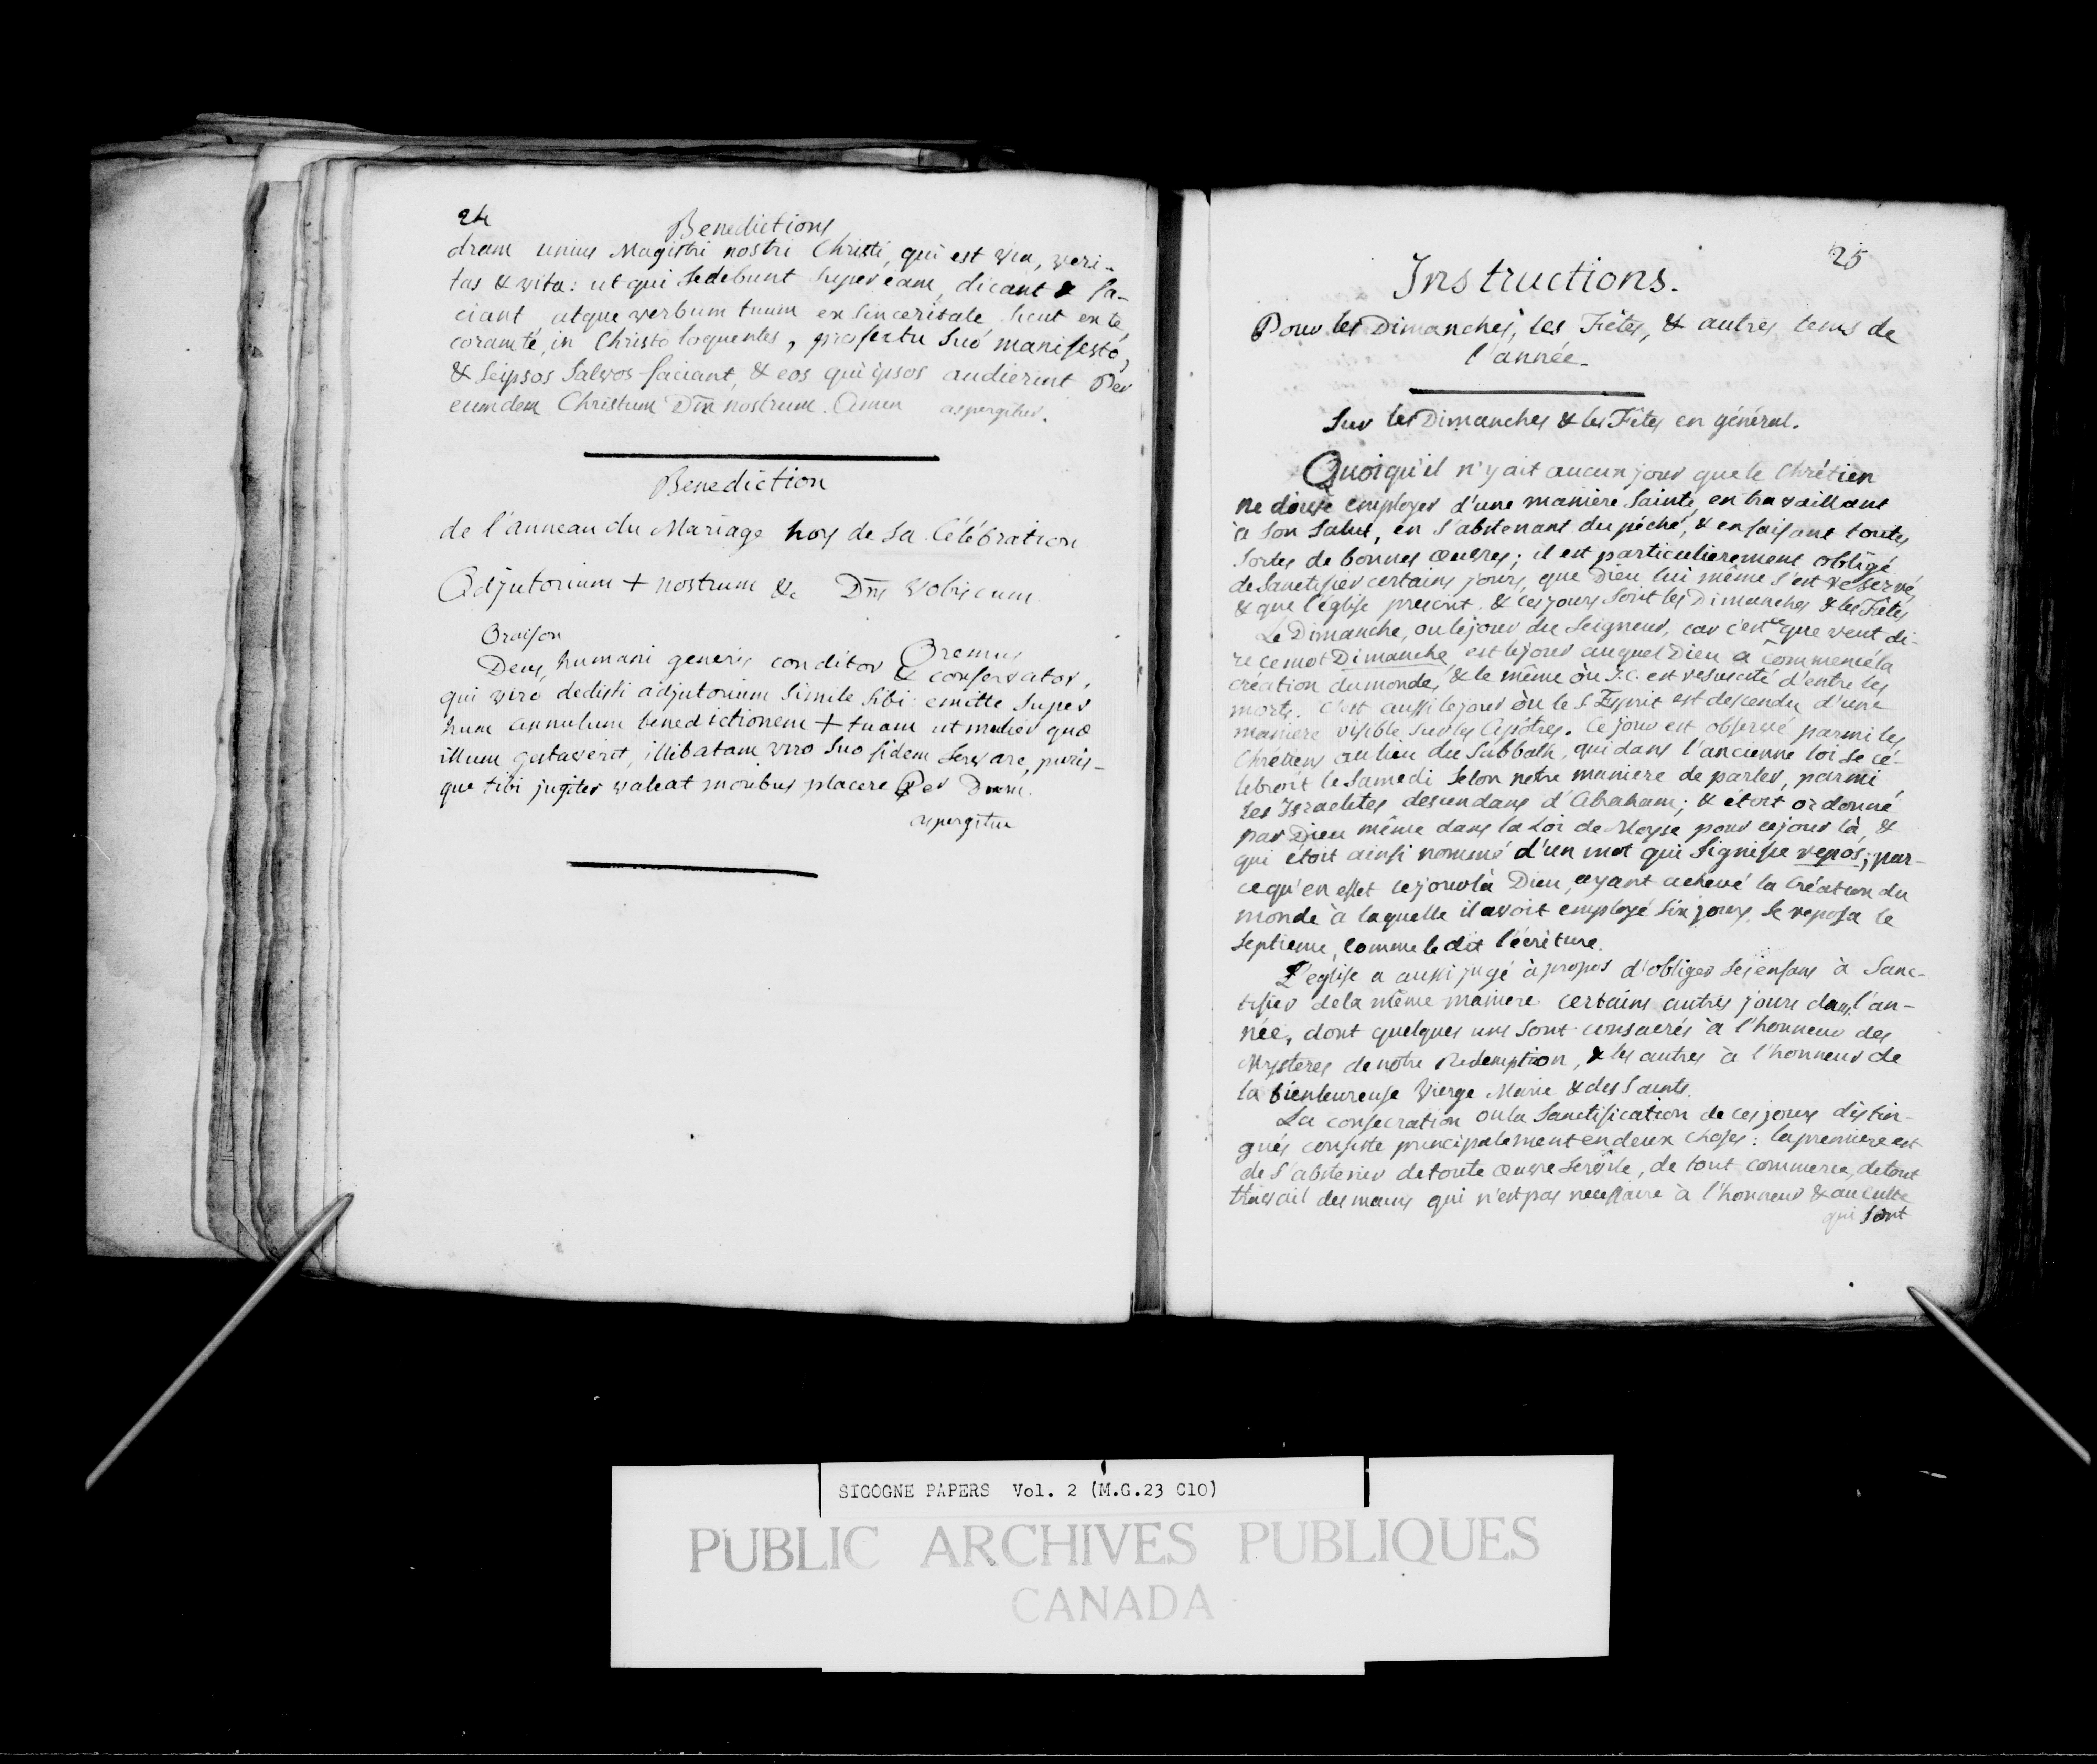 24
Benedictions
dram unius Magistri nostri Christi, qui est via, veri-
tas & vita: ut qui sedebunt super eam, dicant & fa-
ciant atque verbum tuum ex sinceritate sicut ex te,
coram te, in Christo loquentes, profectu suo manifesto,
& seipsos salvos faciant, & eos qui ipsos audierint Per
eumdem Christum Dm̄ nostrum. Amen aspergitur.
Benediction
de l'anneau du Mariage hors de sa Célébration
Adjutorium + nostrum &c Dn̄s vobiscum
Oraison
Oremus
Deus, humani generis conditor & conservator,
qui viro dedisti adjutorium simile sibi: emitte super
hunc annulum benedictionem + tuam ut mulier quæ
illum gestaverit, illibatam viro suo fidem servare, puris-
que tibi jugiter valeat moribus placere Per Dnum.
aspergitur
25
Instructions.
Pour les Dimanches, les Fêtes, & autres tems de
l'année.
Sur les Dimanches & les Fêtes en général.
Quoiqu'il n'y ait aucun jour que le Chrétien
ne doive employer d'une maniere Sainte, en travaillant
à son Salut, en s'abstenant du péché, & en faisant toutes
sortes de bonnes œuvres; il est particulierement obligé
de Sanctifier certains jours, que Dieu lui même s'est reservé,
& que l'église prescrit. & ces jours sont les Dimanches & les Fêtes
Le Dimanche, ou le jour du Seigneur, car c'est ce que veut di-
re ce mot Dimanche, est le jour auquel Dieu a commencé la
création du monde, & le même où J.C. est resuscité d'entre les
morts. C'est aussi le jour où le S Esprit est descendu d'une
maniere visible sur les Apôtres. Ce jour est observé parmi les
Chrétiens au lieu du Sabbath, qui dans l'ancienne loi se cé-
lebroit le Samedi selon notre maniere de parler, parmi
les Israelites descendans d'Abraham; & étoit ordonné
par Dieu même dans la Loi de Moyse pour ce jour là, &
qui étoit ainsi nommé d'un mot qui signifie repos; par-
ce qu'en effet ce jour là Dieu, ayant achevé la Création du
monde à laquelle il avoit employé six jours, se reposa le
septieme, comme le dit l'écriture.
L'eglise a aussi jugé à propos d'obliger ses enfans à Sanc-
tifier de la même maniere certains autres jours dans l'an-
née, dont quelques uns sont consacrés à l'honneur des
Mysteres de notre Redemption, & les autres à l'honneur de
la bienheureuse Vierge Marie & des Saints.
La consecration ou la Sanctification de ces jours distin-
gués consiste principalement en deux choses: la premiere est
de s'abstenir de toute œuvre servile, de tout commerce, de tout
travail des mains qui n'est pas necessaire à l'honneur & au culte
qui sont
SICOGNE PAPERS Vol. 2 (M.G.23 C10)
PUBLIC ARCHIVES PUBLIQUES
CANADA